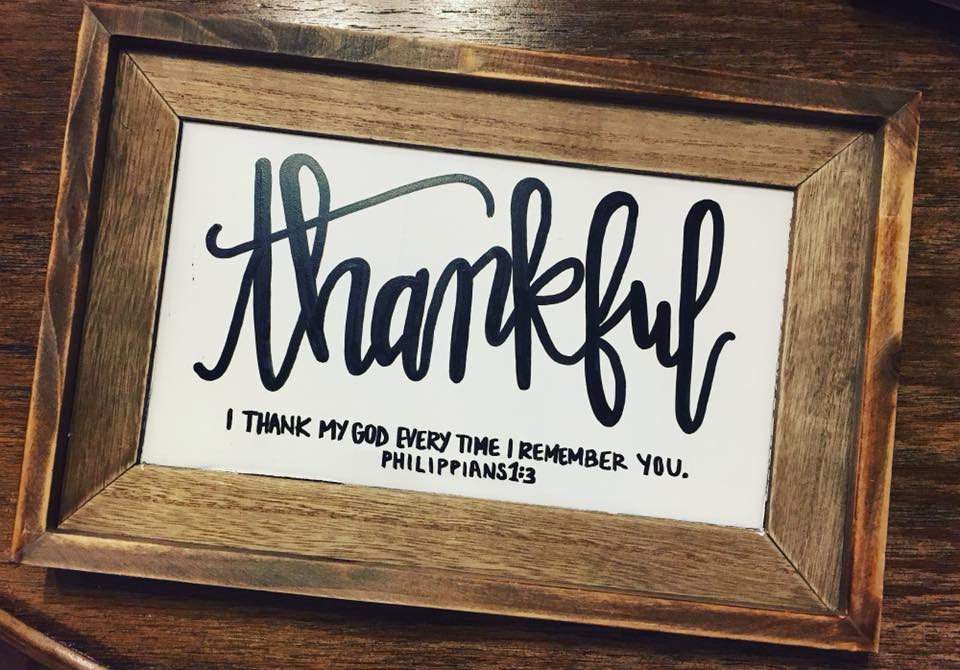 thankful
I THANK MY GOD EVERY TIME I REMEMBER YOU.
PHILIPPIANS 1:3